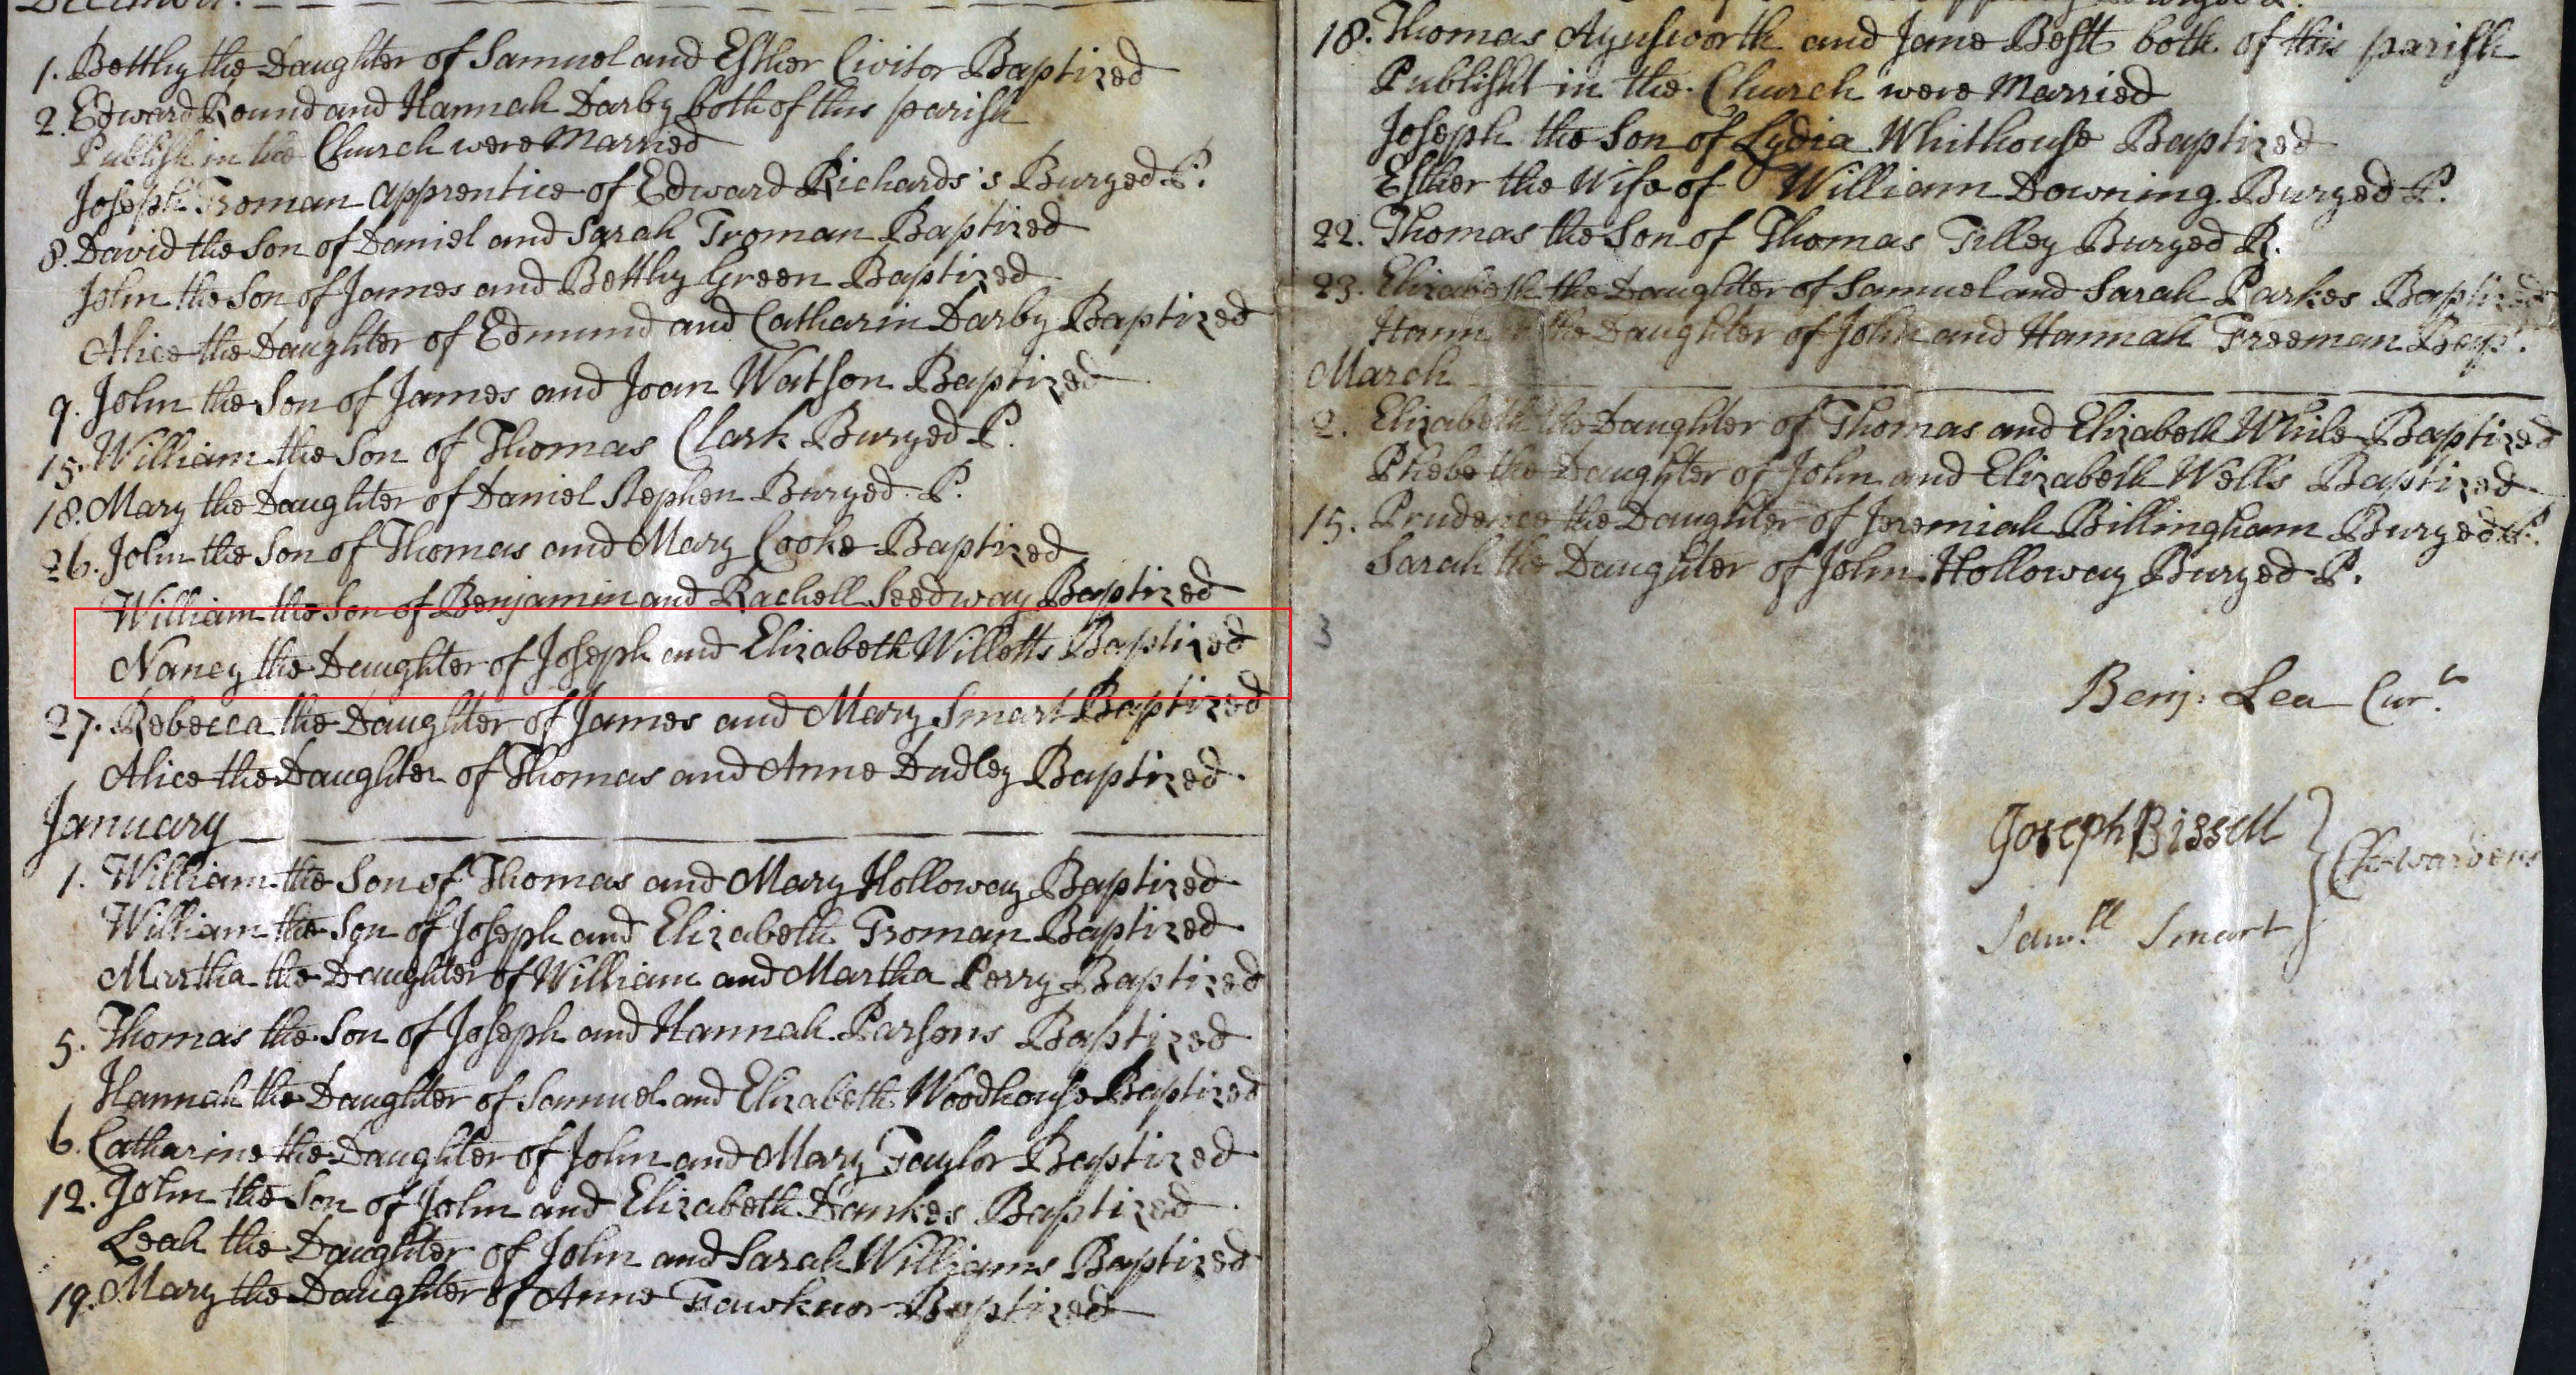 December.
1. Betthy the Daughter of Samuel and Esther Civitor Baptized
2. Edward Round and Hannah Darby both of this parish
Publish in the Church were Married
Joseph Troman apprentice of Edward Richards's Buryed P.
8. David the Son of Daniel and Sarah Troman Baptized
John the Son of James and Betthy Green Baptized
Alice the Daughter of Edmund and Catharin Darby Baptized
9. John the Son of James and Joan Watson Baptized
15. William the Son of Thomas Clark Buryed P.
18. Mary the Daughter of Daniel Stephen Buryed. P.
26. John the Son of Thomas and Mary Cooke Baptized
William the Son of Benjamin and Rachell Seedway Baptized
Nancy the Daughter of Joseph and Elizabeth Willetts Baptized
27. Rebecca the Daughter of James and Mary Smart Baptized
Alice the Daughter of Thomas and Anne Dudley Baptized.
January
1. William the Son of Thomas and Mary Holloway Baptized
William the Son of Joseph and Elizabeth Troman Baptized
Martha the Daughter of William and Martha Perry Baptized
5. Thomas the Son of Joseph and Hannah Parsons Baptized
Hannah the Daughter of Samuel and Elizabeth Woodhouse Baptized
6. Catharine the Daughter of John and Mary Taylor Baptized
12. John the Son of John and Elizabeth Dankes Baptized
Leah the Daughter of John and Sarah Williams Baptized
19. Mary the Daughter of Anne Fawkner Baptized
18. Thomas Aynsworth and Jane Bestt both of this parish
Publisht in the Church were Married
Joseph the Son of Lydia Whithouse Baptized
Esther the Wife of William Downing Buryed P.
22. Thomas the Son of Thomas Tilley Buryed P.
23. Elizabeth the Daughter of Samuel and Sarah Parkes Baptized
the Daughter of John and Hannah Freeman Bap.
March
2. Elizabeth the Daughter of Thomas and Elizabeth While Baptized
Phebe the Daughter of John and Elizabeth Wells Baptized
15. Prudence the Daughter of Jeremiah Billingham Buryed P.
Sarah the Daughter of John Holloway Buryed P.
3
Benj: Lea Cur.
Joseph Bissell
Ch:wardens
Sam.ll Smart